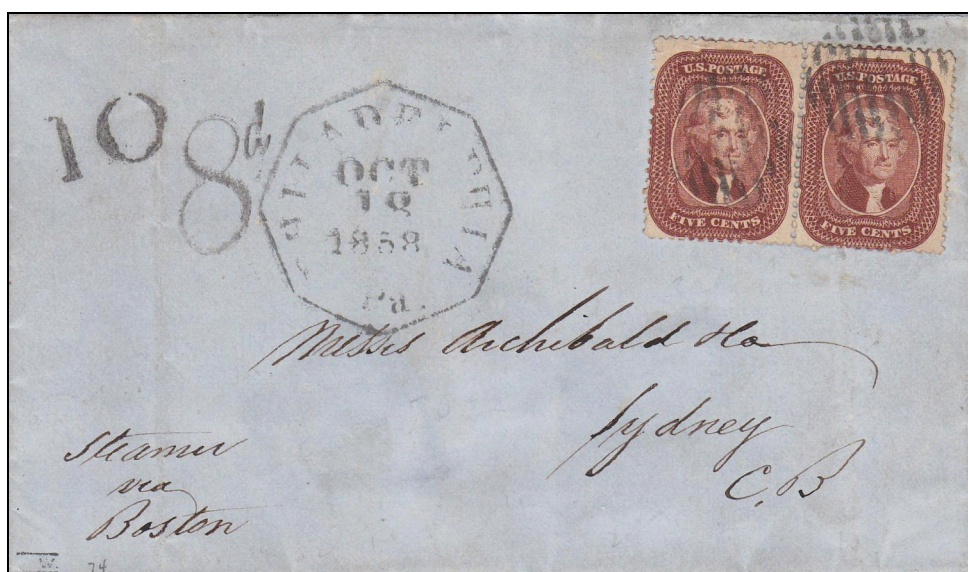 10
8d
PHILADELPHIA
OCT
18
1858
Pa.
U.S. POSTAGE
FIVE CENTS
U.S. POSTAGE
FIVE CENTS
Messrs Archibald & Co
Sydney
C.B
Steamer
via
Boston
W.
74